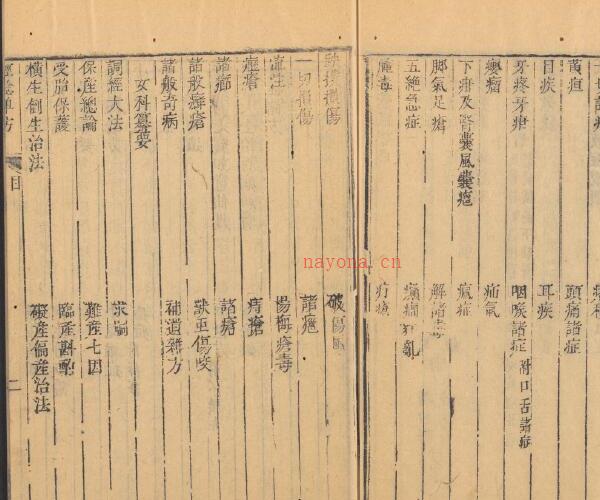 黃疸
頭痛諸症
目疾
耳疾
牙疼牙疳
咽喉諸症 附口舌諸症
癭瘤
疝氣
下疳及腎囊風囊癰
瘋症
脚氣足瘡
解諸毒
五絕急症
癲癇狂亂
腫毒
疔瘡
跌撲損傷
破傷風
一切損傷
諸瘋
楊梅瘡毒
疳瘡
諸瘤
諸瘡
諸般癬瘡
獸虫傷咬
諸般奇病
補遺雜方
女科纂要
調經大法
求嗣
保產總論
難產七因
受胎保護
臨產斟酌
橫生倒生治法
礙產偏產治法
目
二
nayona.cn